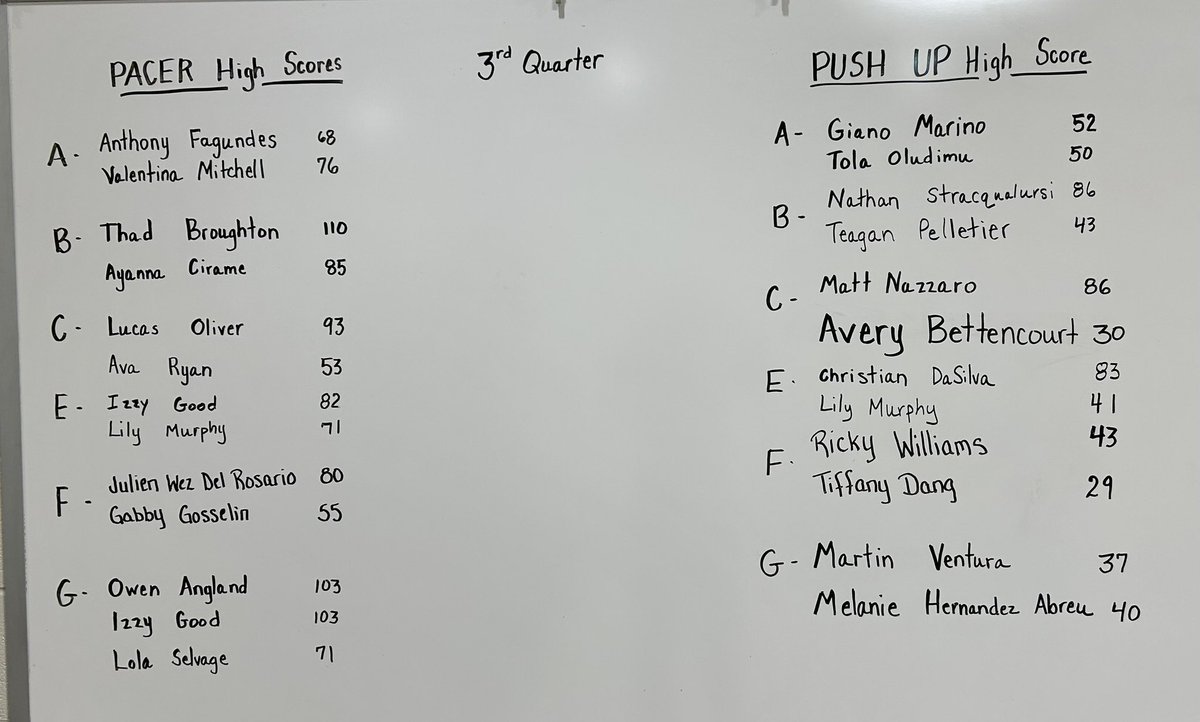 PACER High Scores
A- Anthony Fagundes 68
Valentina Mitchell 76
B- Thad Broughton 110
Ayanna Cirame 85
C- Lucas Oliver 93
Ava Ryan 53
E- Izzy Good 82
Lily Murphy 71
F- Julien Wez Del Rosario 80
Gabby Gosselin 55
G- Owen Angland 103
Izzy Good 103
Lola Selvage 71
3rd Quarter
PUSH UP High Score
A- Giano Marino 52
Tola Oludimu 50
B- Nathan Stracqualursi 86
Teagan Pelletier 43
C- Matt Nazzaro 86
Avery Bettencourt 30
E- Christian DaSilva 83
Lily Murphy 41
F- Ricky Williams 43
Tiffany Dang 29
G- Martin Ventura 37
Melanie Hernandez Abreu 40